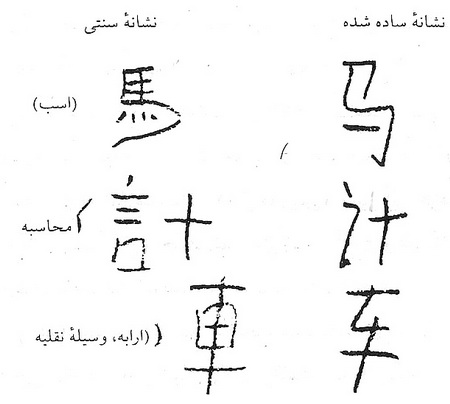 نشانهٔ ساده شده نشانهٔ سنتی
马 馬 (اسب)
计 計 (محاسبه
车 車 (ارابه، وسیلهٔ نقلیه)